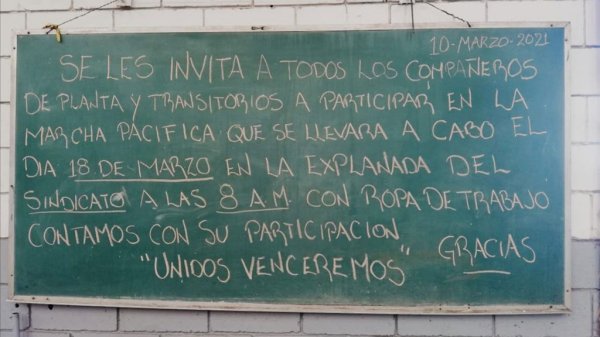 10-MARZO-2021
SE LES INVITA A TODOS LOS COMPAÑEROS
DE PLANTA Y TRANSITORIOS A PARTICIPAR EN LA
MARCHA PACIFICA QUE SE LLEVARA A CABO EL
DIA 18 DE MARZO EN LA EXPLANADA DEL
SINDICATO A LAS 8 A.M. CON ROPA DE TRABAJO
CONTAMOS CON SU PARTICIPACION
"UNIDOS VENCEREMOS" GRACIAS